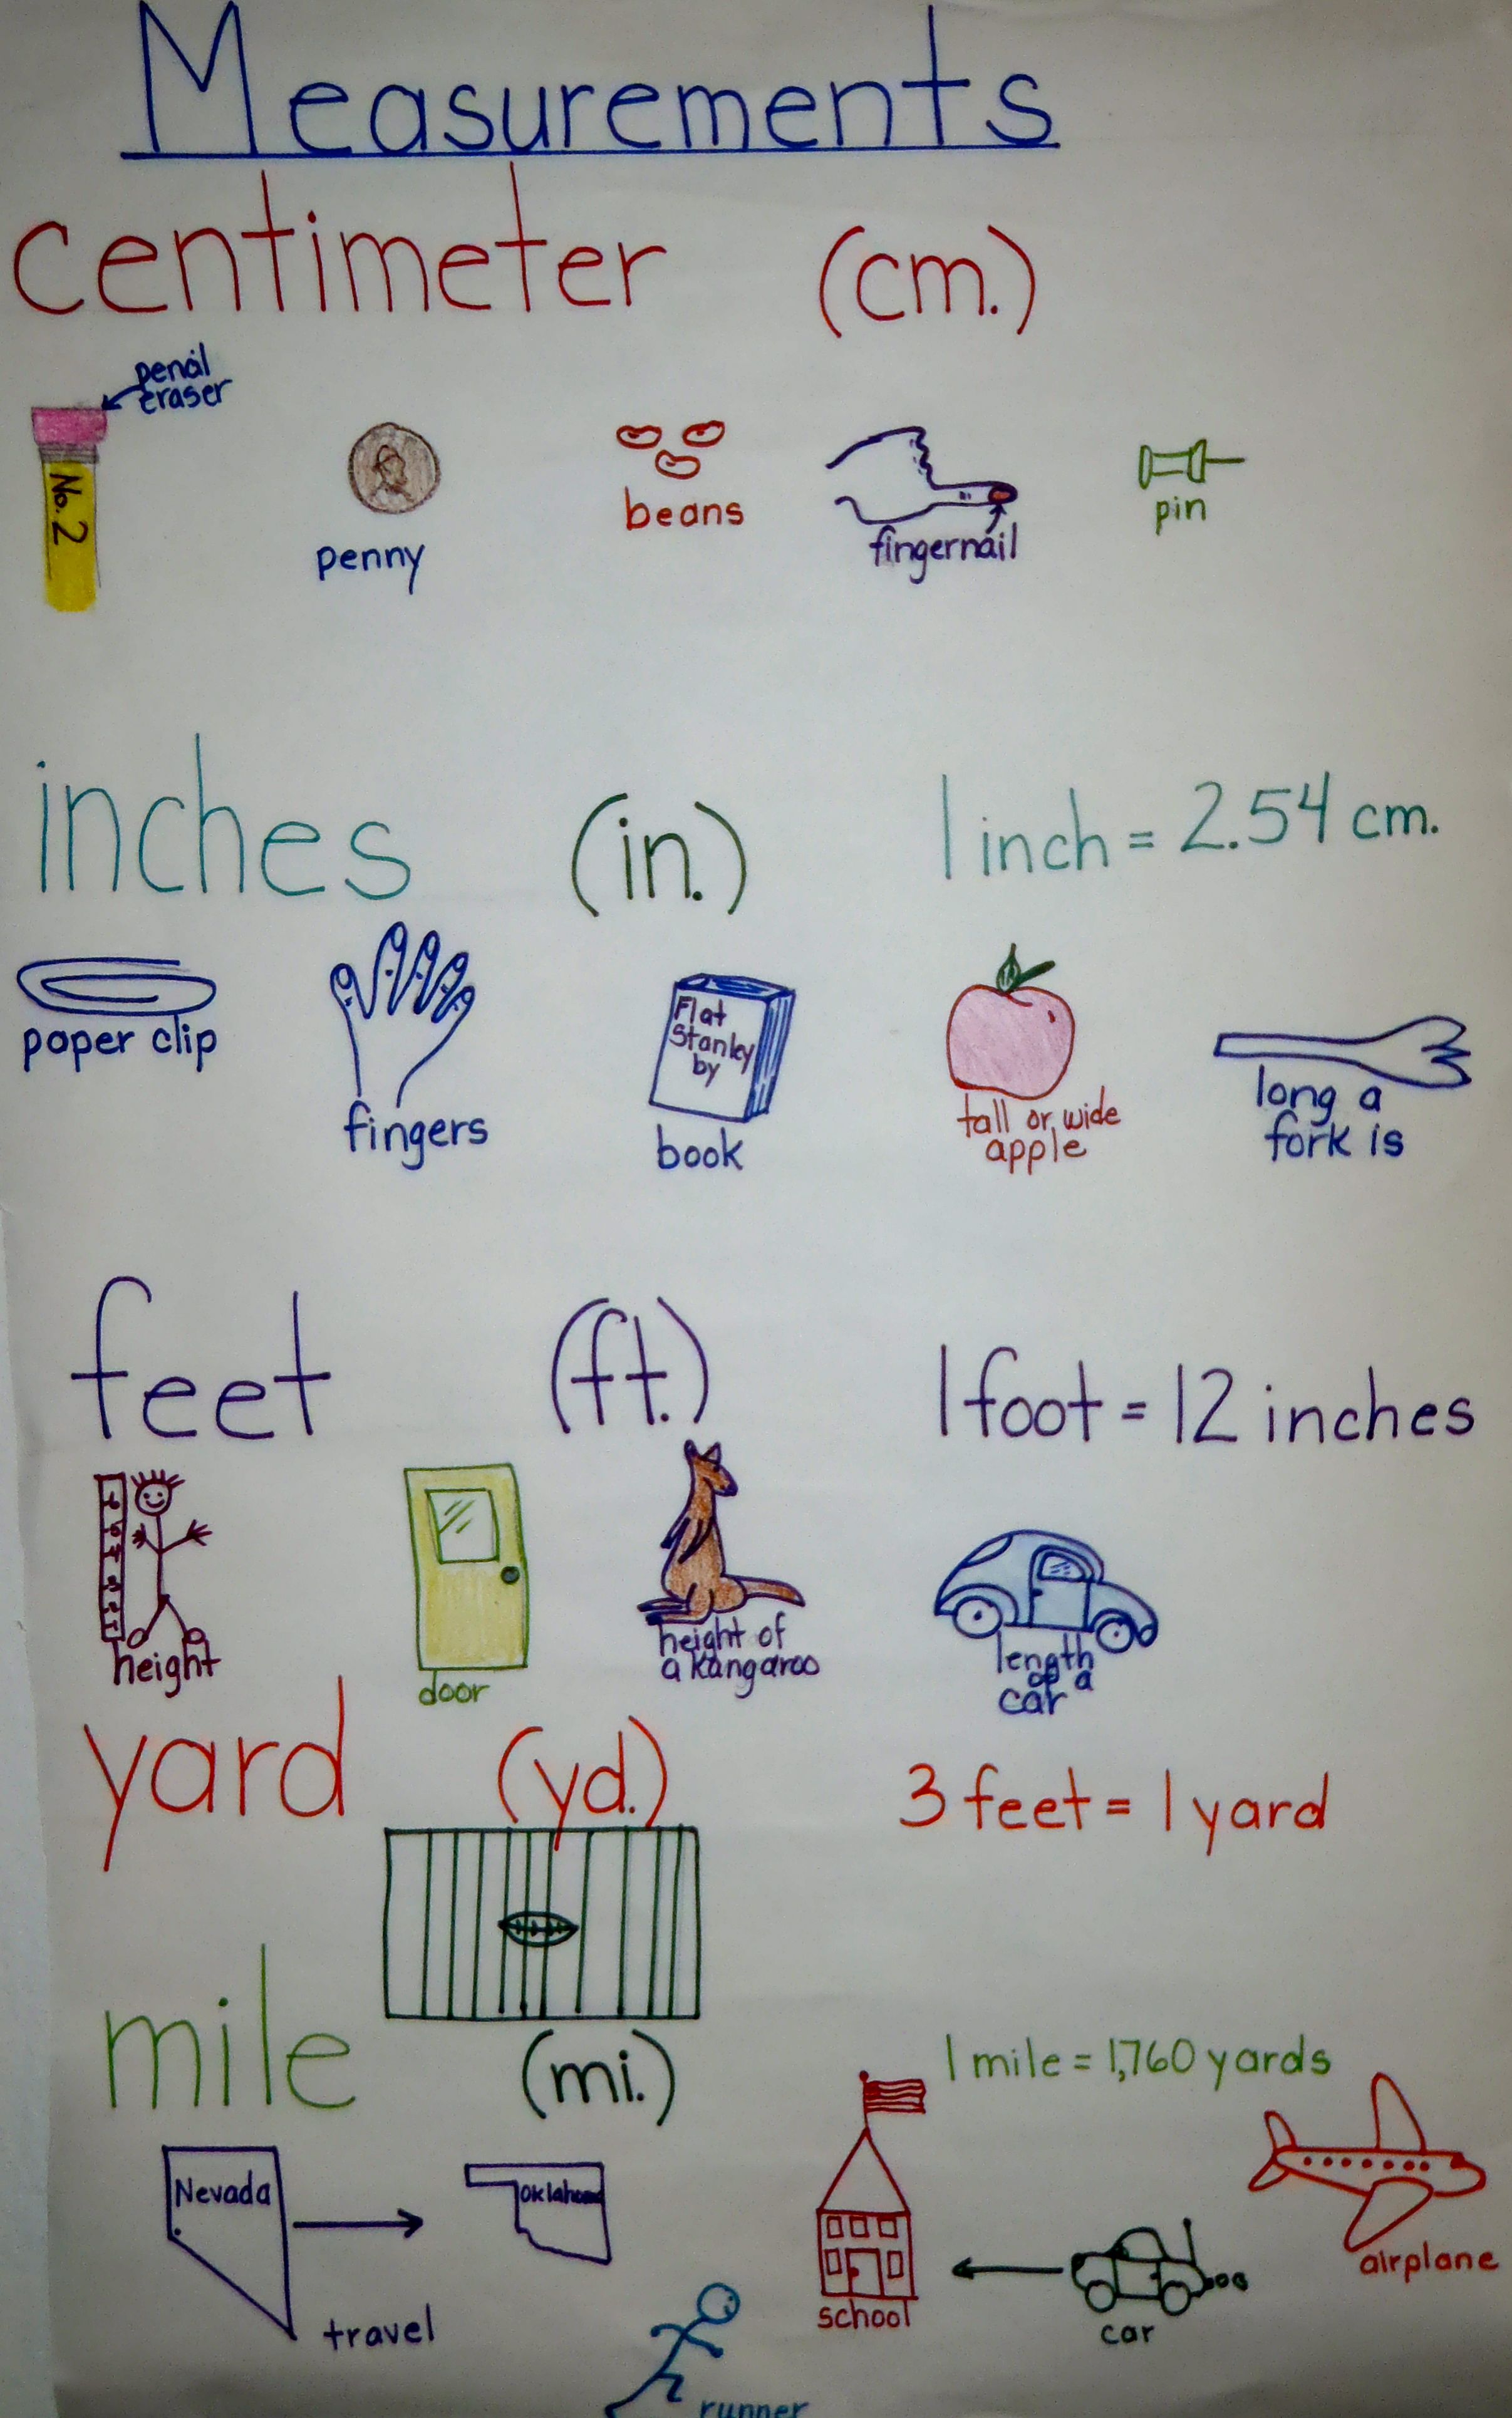 Measurements
centimeter (cm.)
pencil
eraser
No. 2
penny
beans
fingernail
pin
inches (in.) 1 inch = 2.54 cm.
paper clip
fingers
Flat
Stanley
by
book
tall or wide
apple
long a
fork is
feet (ft.) 1 foot = 12 inches
height
door
height of
a kangaroo
length
of a
car
yard (yd.) 3 feet = 1 yard
mile (mi.) 1 mile = 1,760 yards
Nevada
Oklahoma
travel
runner
school
car
airplane